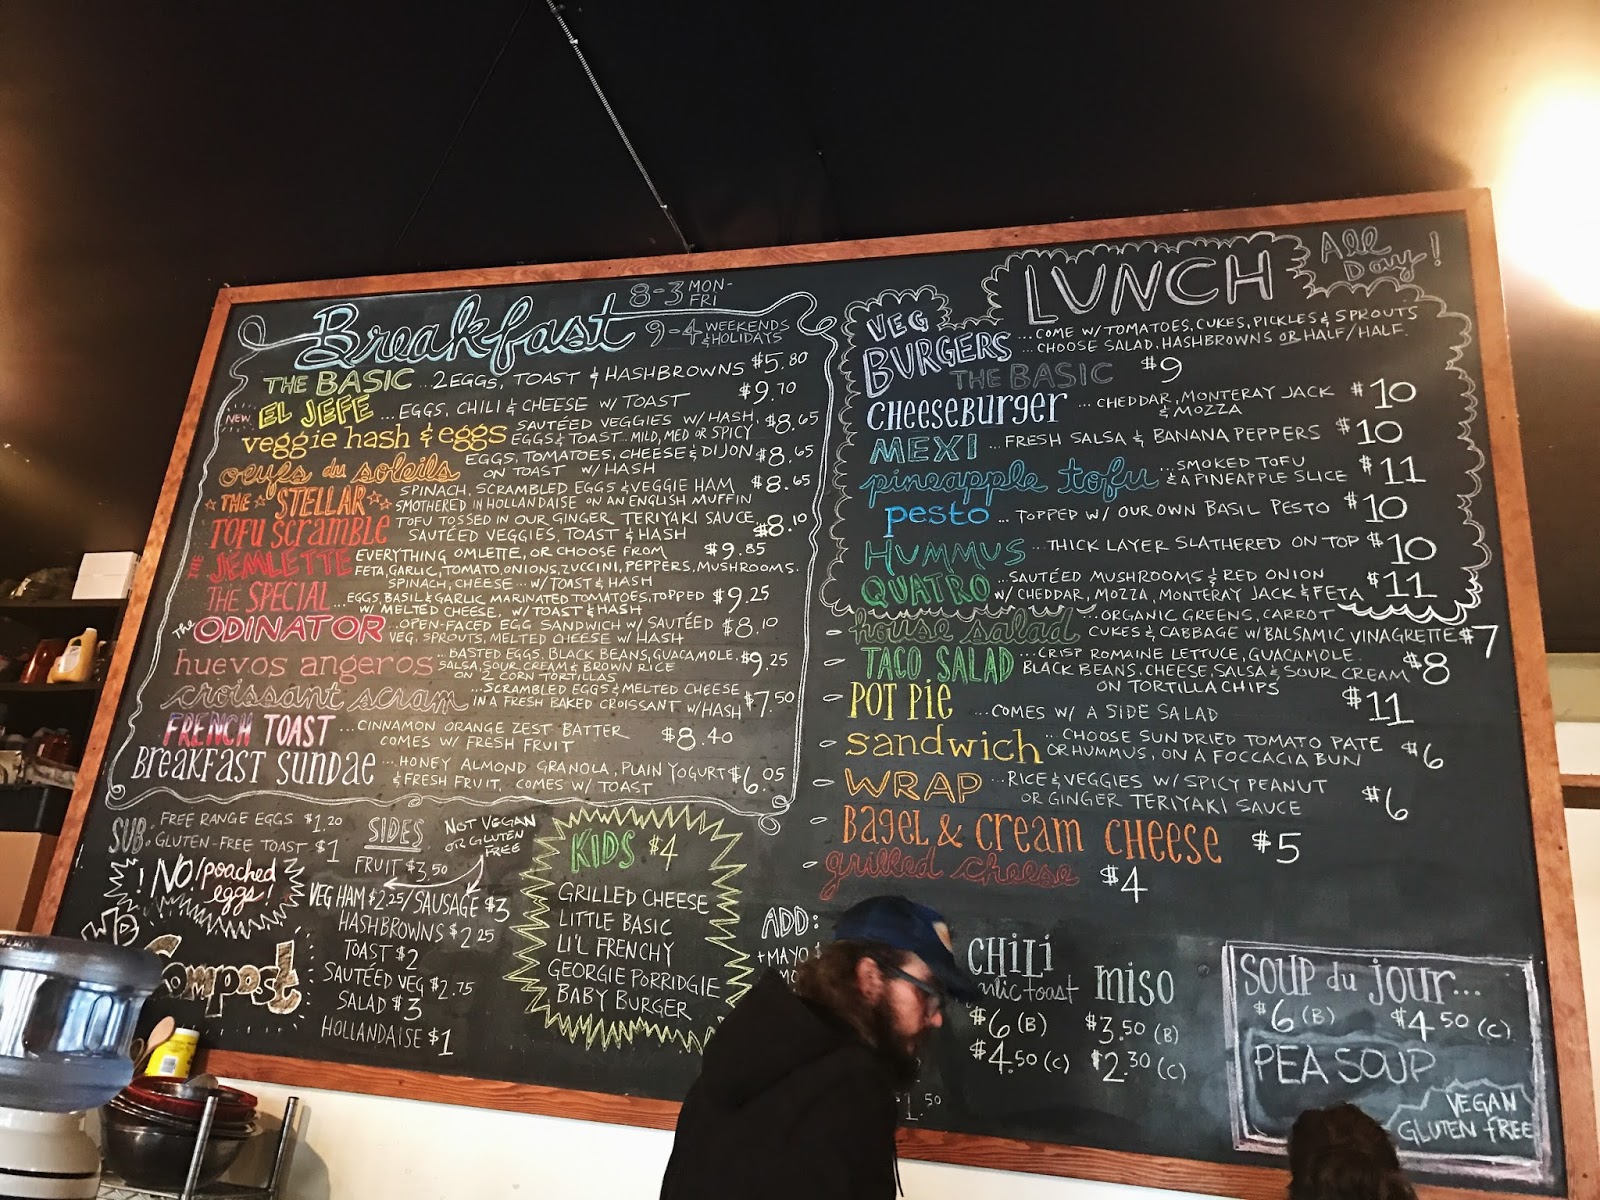 Breakfast
8-3 MON-FRI
9-4 WEEKENDS & HOLIDAYS
THE BASIC ...2 EGGS, TOAST & HASHBROWNS $5.80
NEW EL JEFE ...EGGS, CHILI & CHEESE W/ TOAST $9.70
veggie hash & eggs SAUTÉED VEGGIES W/ HASH, $8.65
EGGS & TOAST... MILD, MED OR SPICY
oeufs du soleils EGGS, TOMATOES, CHEESE & DIJON $8.65
ON TOAST W/ HASH
THE STELLAR SPINACH, SCRAMBLED EGGS & VEGGIE HAM $8.65
SMOTHERED IN HOLLANDAISE ON AN ENGLISH MUFFIN
TOFU SCRAMBLE TOFU TOSSED IN OUR GINGER TERIYAKI SAUCE, $8.10
SAUTÉED VEGGIES, TOAST & HASH
THE JEMLETTE EVERYTHING OMLETTE, OR CHOOSE FROM $9.85
FETA, GARLIC, TOMATO, ONIONS, ZUCCINI, PEPPERS, MUSHROOMS.
SPINACH, CHEESE... W/ TOAST & HASH
THE SPECIAL ...EGGS, BASIL & GARLIC MARINATED TOMATOES, TOPPED $9.25
W/ MELTED CHEESE, W/ TOAST & HASH
THE ODINATOR ...OPEN-FACED EGG SANDWICH W/ SAUTÉED $8.10
VEG, SPROUTS, MELTED CHEESE W/ HASH
huevos angeros ...BASTED EGGS, BLACK BEANS, GUACAMOLE, $9.25
SALSA, SOUR CREAM & BROWN RICE
ON 2 CORN TORTILLAS
croissant scram ...SCRAMBLED EGGS & MELTED CHEESE $7.50
IN A FRESH BAKED CROISSANT W/ HASH
FRENCH TOAST ...CINNAMON ORANGE ZEST BATTER $8.40
COMES W/ FRESH FRUIT
BREAKFAST SUNDAE ...HONEY ALMOND GRANOLA, PLAIN YOGURT $6.05
& FRESH FRUIT, COMES W/ TOAST
SUB: FREE RANGE EGGS $1.20
GLUTEN-FREE TOAST $1
! NO! poached eggs!
WE Compost
SIDES
NOT VEGAN OR GLUTEN FREE
FRUIT $3.50
VEG HAM $2.25 / SAUSAGE $3
HASHBROWNS $2.25
TOAST $2
SAUTÉED VEG $2.75
SALAD $3
HOLLANDAISE $1
KIDS $4
GRILLED CHEESE
LITTLE BASIC
LI'L FRENCHY
GEORGIE PORRIDGIE
BABY BURGER
LUNCH All Day!
VEG BURGERS
...COME W/ TOMATOES, CUKES, PICKLES & SPROUTS
...CHOOSE SALAD, HASHBROWNS OR HALF/HALF.
THE BASIC $9
CHEESEBURGER ...CHEDDAR, MONTERAY JACK $10
& MOZZA
MEXI ...FRESH SALSA & BANANA PEPPERS $10
pineapple tofu ...SMOKED TOFU $11
& A PINEAPPLE SLICE
pesto ...TOPPED W/ OUR OWN BASIL PESTO $10
HUMMUS ...THICK LAYER SLATHERED ON TOP $10
QUATRO ...SAUTÉED MUSHROOMS & RED ONION $11
W/ CHEDDAR, MOZZA, MONTERAY JACK & FETA
- house salad ...ORGANIC GREENS, CARROT
CUKES & CABBAGE W/ BALSAMIC VINAGRETTE $7
- TACO SALAD ...CRISP ROMAINE LETTUCE, GUACAMOLE, $8
BLACK BEANS, CHEESE, SALSA & SOUR CREAM
ON TORTILLA CHIPS
- POT PIE ...COMES W/ A SIDE SALAD $11
- sandwich ...CHOOSE SUNDRIED TOMATO PATE $6
OR HUMMUS, ON A FOCCACIA BUN
- WRAP ...RICE & VEGGIES W/ SPICY PEANUT $6
OR GINGER TERIYAKI SAUCE
- BAGEL & CREAM CHEESE $5
- grilled cheese $4
ADD:
+MAYO
CHILI
toast
$6 (B)
$4.50 (C)
MISO
$3.50 (B)
$2.30 (C)
SOUP du JOUR...
$6 (B) $4.50 (C)
PEA SOUP
VEGAN
GLUTEN FREE